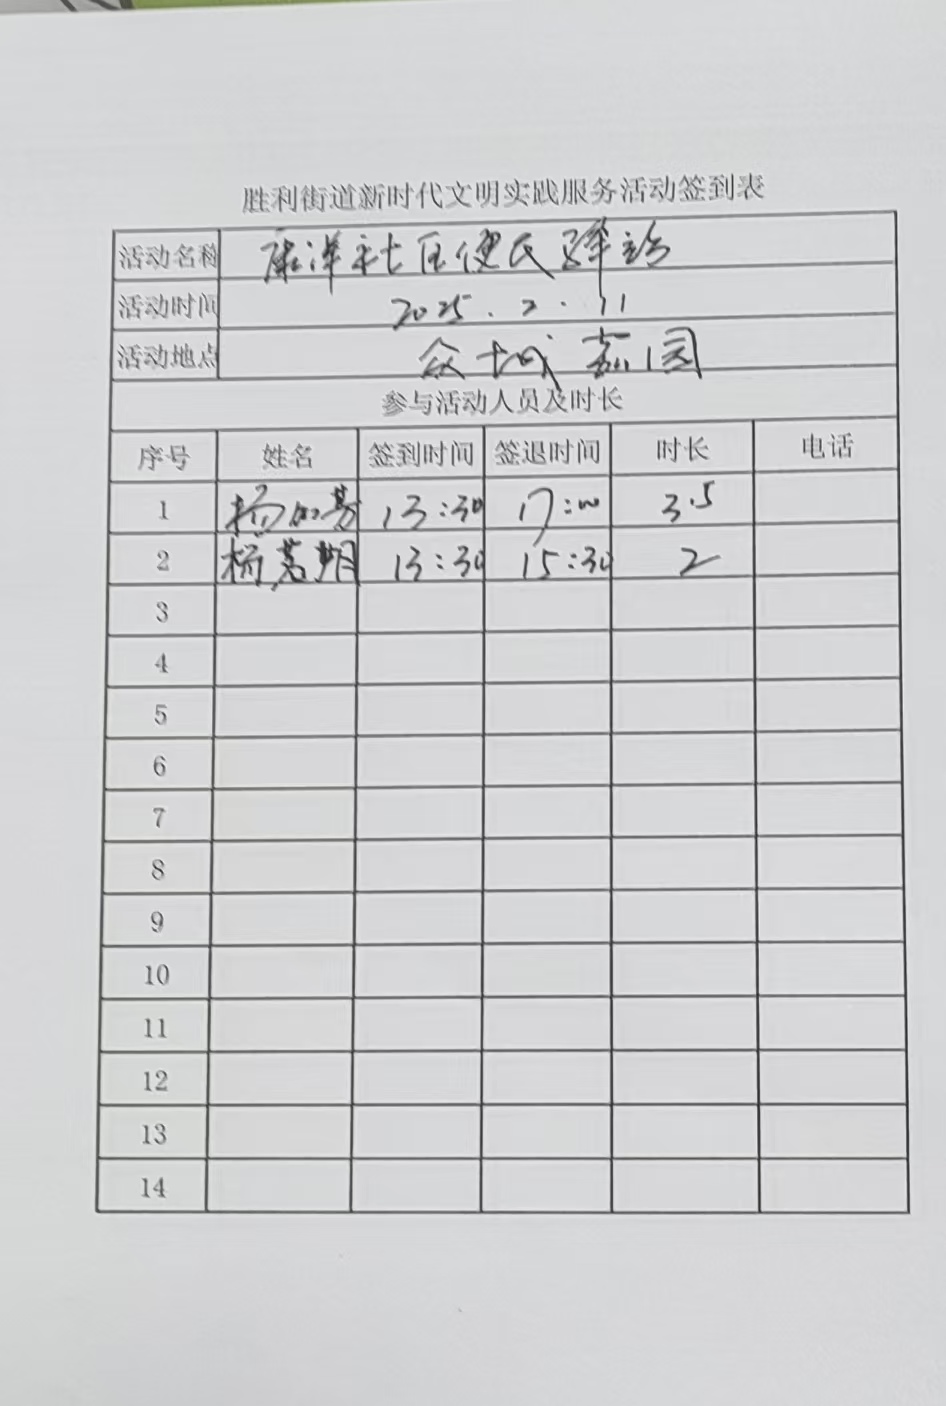 胜利街道新时代文明实践服务活动签到表
活动名称 康洋社区便民驿站
活动时间 2025.2.11
活动地点 众城嘉园
参与活动人员及时长
序号 姓名 签到时间 签退时间 时长 电话
1 杨 13:30 17:00 3.5
2 杨 13:30 15:30 2
3
4
5
6
7
8
9
10
11
12
13
14